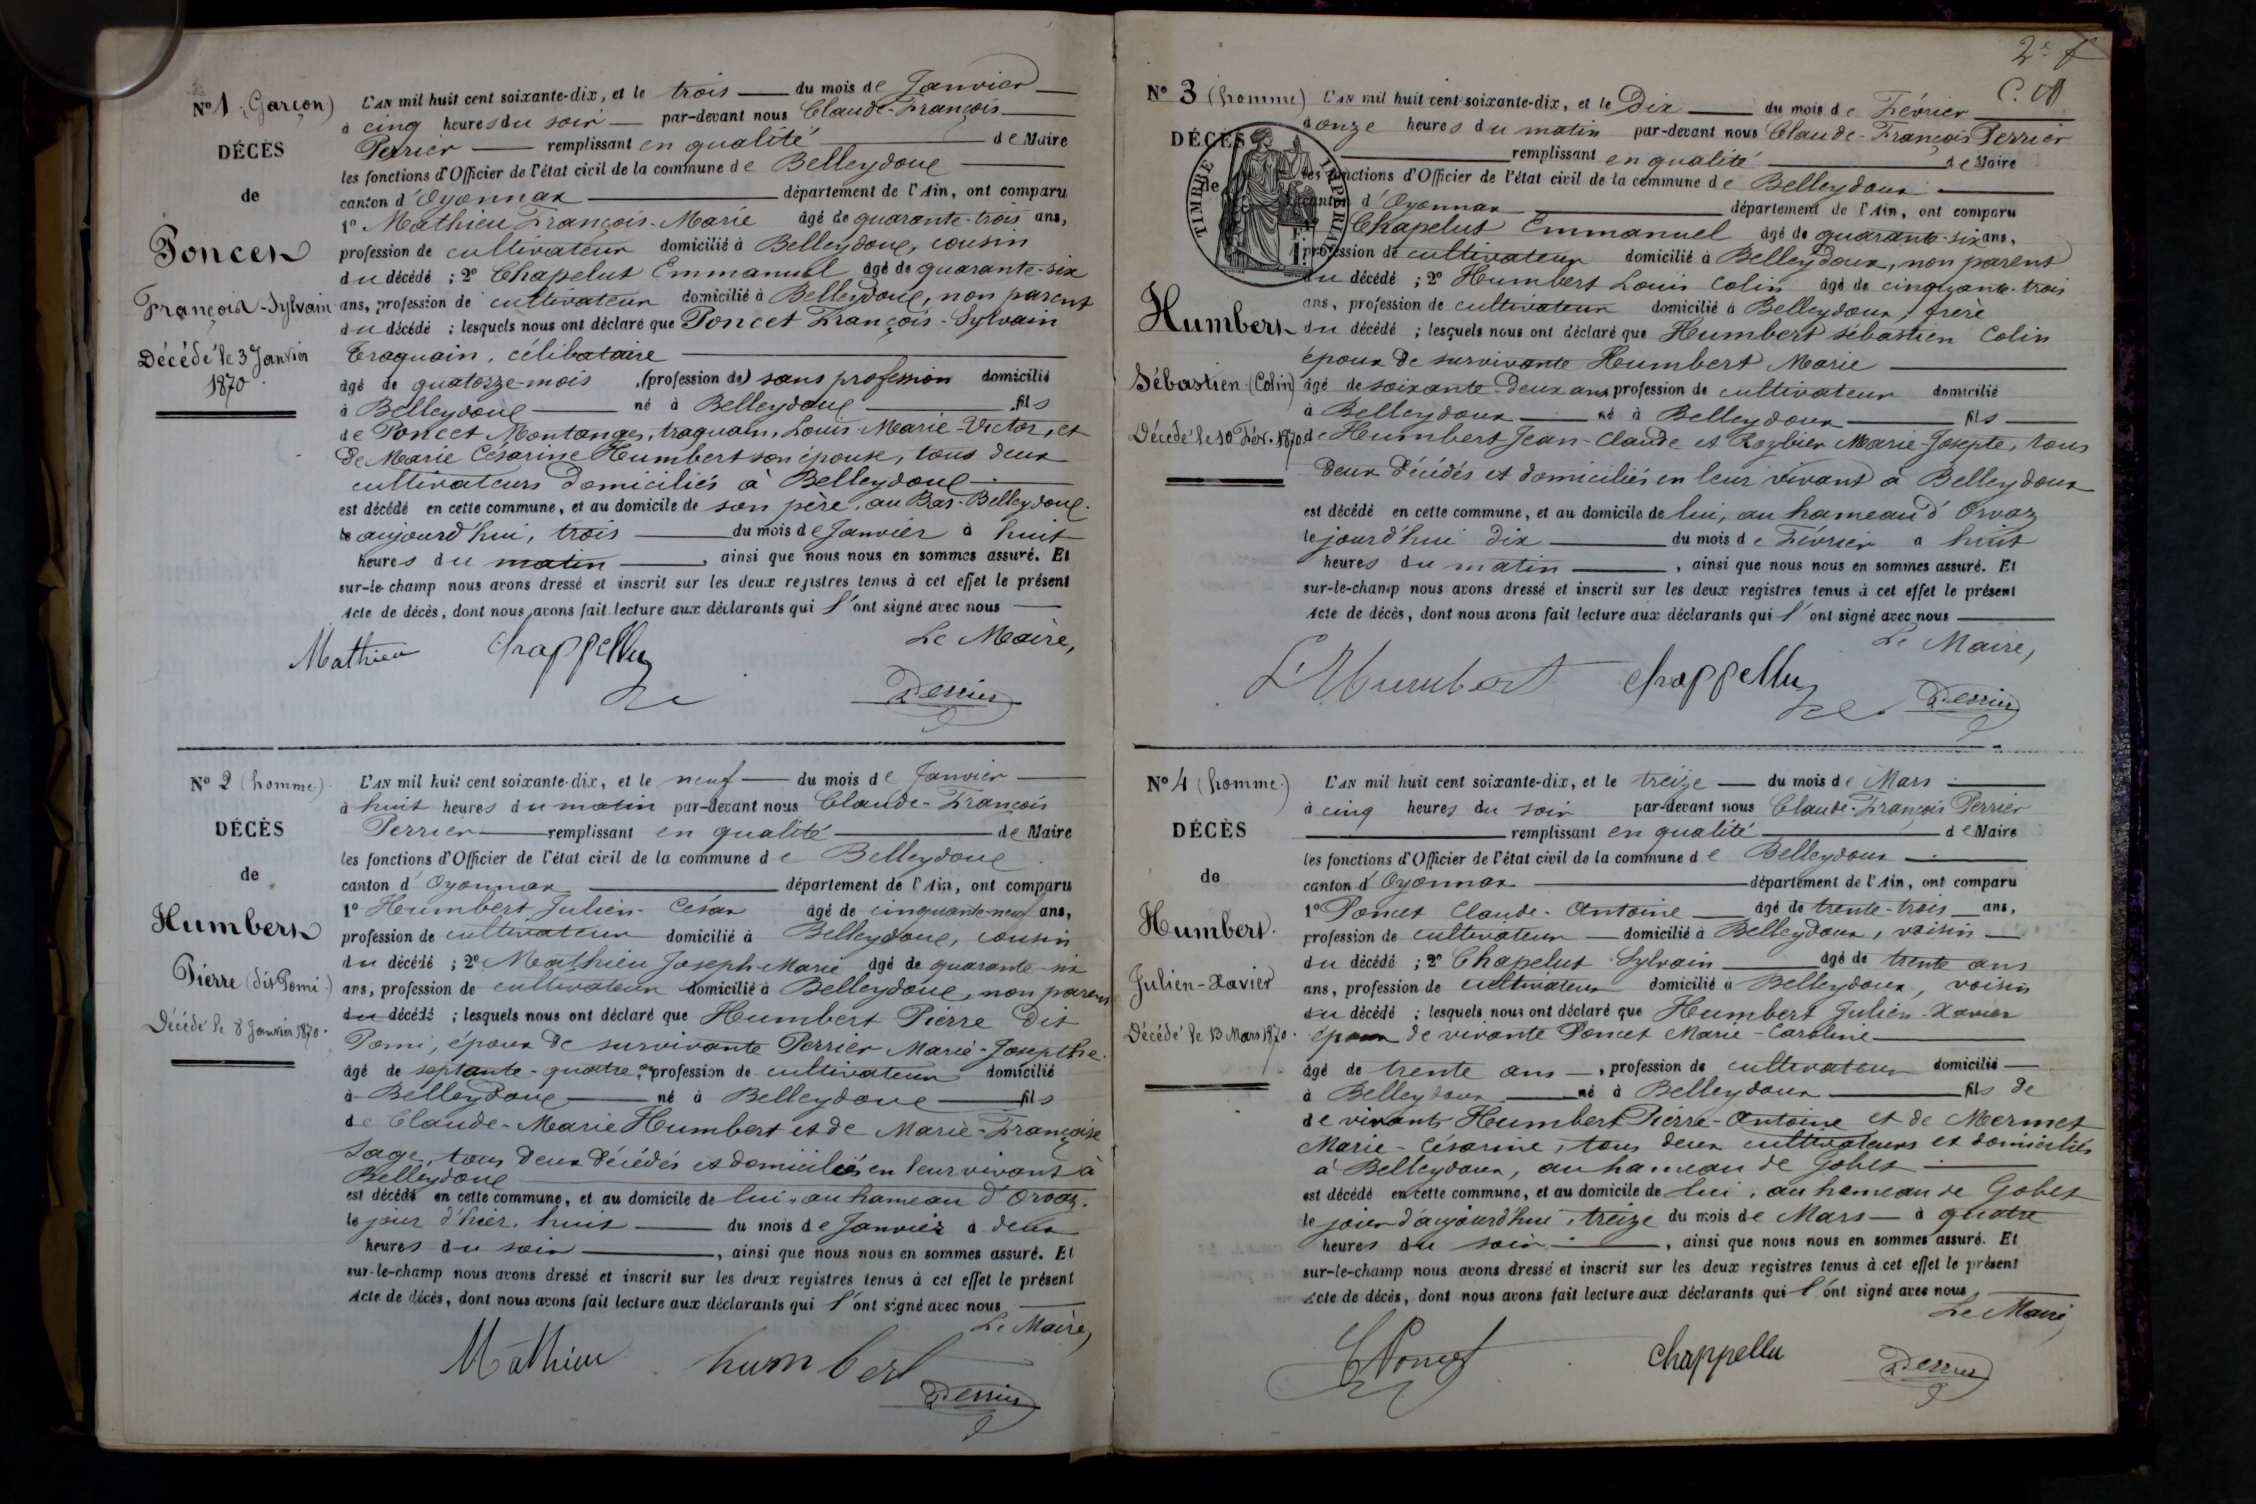 N° 1 (Garçon)
DÉCÈS
de
Poncet
François-Sylvain
Décédé le 3 Janvier
1870.
L'AN mil huit cent soixante-dix, et le trois du mois de Janvier
à cinq heures du soir par-devant nous Claude-François
Perrier remplissant en qualité de Maire
les fonctions d'Officier de l'état civil de la commune de Belleydoue
canton d'Oyonnax département de l'Ain, ont comparu
1° Mathieu François-Marie âgé de quarante-trois ans,
profession de cultivateur domicilié à Belleydoue, cousin
du décédé ; 2° Chapelut Emmanuel âgé de quarante-six
ans, profession de cultivateur domicilié à Belleydoue, non parent
du décédé ; lesquels nous ont déclaré que Poncet François-Sylvain
traquain, célibataire
âgé de quatorze-mois, (profession de) sans profession domicilié
à Belleydoue né à Belleydoue fils
de Poncet Montange, traquain, Louis-Marie-Victor, et
de Marie Césarine Humbert son épouse, tous deux
cultivateurs domiciliés à Belleydoue
est décédé en cette commune, et au domicile de son père, au Bas-Belleydoue.
le aujourd'hui, trois du mois de Janvier à huit
heures du matin, ainsi que nous nous en sommes assuré. Et
sur-le-champ nous avons dressé et inscrit sur les deux registres tenus à cet effet le présent
Acte de décès, dont nous avons fait lecture aux déclarants qui l'ont signé avec nous
Le Maire,
Mathieu Chappellu Perrier
N° 2 (homme)
DÉCÈS
de
Humbert
Pierre (dit Pomi)
Décédé le 8 Janvier 1870.
L'AN mil huit cent soixante-dix, et le neuf du mois de Janvier
à huit heures du matin par-devant nous Claude-François
Perrier remplissant en qualité de Maire
les fonctions d'Officier de l'état civil de la commune de Belleydoue
canton d'Oyonnax département de l'Ain, ont comparu
1° Humbert Julien-César âgé de cinquante-neuf ans,
profession de cultivateur domicilié à Belleydoue, cousin
du décédé ; 2° Mathieu Joseph-Marie âgé de quarante-six
ans, profession de cultivateur domicilié à Belleydoue, non parent
du décédé ; lesquels nous ont déclaré que Humbert Pierre dit
Pomi, époux de survivante Perrier Marie-Josepthe.
âgé de septante-quatre ans profession de cultivateur domicilié
à Belleydoue né à Belleydoue fils
de Claude-Marie Humbert et de Marie-Françoise
Sage, tous deux décédés et domiciliés en leur vivant à
Belleydoue
est décédé en cette commune, et au domicile de lui, au hameau d'Orvaz.
le jour d'hier, huit du mois de Janvier à deux
heures du soir, ainsi que nous nous en sommes assuré. Et
sur-le-champ nous avons dressé et inscrit sur les deux registres tenus à cet effet le présent
Acte de décès, dont nous avons fait lecture aux déclarants qui l'ont signé avec nous
Le Maire,
Mathieu humbert Perrier
2e f
N° 3 (homme)
DÉCÈS
de
TIMBRE IMPÉRIAL
Humbert
Sébastien (Colin)
Décédé le 10 Févr. 1870.
L'AN mil huit cent soixante-dix, et le Dix du mois de Février
à onze heures du matin par-devant nous Claude-François Perrier
remplissant en qualité de Maire
les fonctions d'Officier de l'état civil de la commune de Belleydoux
canton d'Oyonnax département de l'Ain, ont comparu
1° Chapelut Emmanuel âgé de quarante-six ans,
profession de cultivateur domicilié à Belleydoux, non parent
du décédé ; 2° Humbert Louis Colin âgé de cinquante-trois
ans, profession de cultivateur domicilié à Belleydoux, frère
du décédé ; lesquels nous ont déclaré que Humbert sébastien Colin
époux de survivante Humbert Marie
âgé de soixante-deux ans profession de cultivateur domicilié
à Belleydoux né à Belleydoux fils
de Humbert Jean-Claude et Roybier Marie-Josepte, tous
deux décédés et domiciliés en leur vivant à Belleydoux
est décédé en cette commune, et au domicile de lui, au hameau d'Orvaz
le jourd'hui dix du mois de Février à huit
heures du matin, ainsi que nous nous en sommes assuré. Et
sur-le-champ nous avons dressé et inscrit sur les deux registres tenus à cet effet le présent
Acte de décès, dont nous avons fait lecture aux déclarants qui l'ont signé avec nous
Le Maire,
L Humbert Chappellu Perrier
N° 4 (homme)
DÉCÈS
de
Humbert.
Julien-Xavier
Décédé le 13 Mars 1870.
L'AN mil huit cent soixante-dix, et le treize du mois de Mars
à cinq heures du soir par-devant nous Claude-François Perrier
remplissant en qualité de Maire
les fonctions d'Officier de l'état civil de la commune de Belleydoux
canton d'Oyonnax département de l'Ain, ont comparu
1° Poncet Claude-Antoine âgé de trente-trois ans,
profession de cultivateur domicilié à Belleydoux, voisin
du décédé ; 2° Chapelut Sylvain âgé de trente ans
ans, profession de cultivateur domicilié à Belleydoux, voisin
du décédé ; lesquels nous ont déclaré que Humbert Julien-Xavier
époux de vivante Poncet Marie-Caroline
âgé de trente ans, profession de cultivateur domicilié
à Belleydoux né à Belleydoux fils de
de vivants Humbert Pierre-Antoine et de Mermet
Marie-Césarine, tous deux cultivateurs et domiciliés
à Belleydoux, au hameau de Gobet
est décédé en cette commune, et au domicile de lui, au hameau de Gobet
le jour d'aujourd'hui, treize du mois de Mars à quatre
heures du soir, ainsi que nous nous en sommes assuré. Et
sur-le-champ nous avons dressé et inscrit sur les deux registres tenus à cet effet le présent
Acte de décès, dont nous avons fait lecture aux déclarants qui l'ont signé avec nous
Le Maire,
Poncet Chappellu Perrier